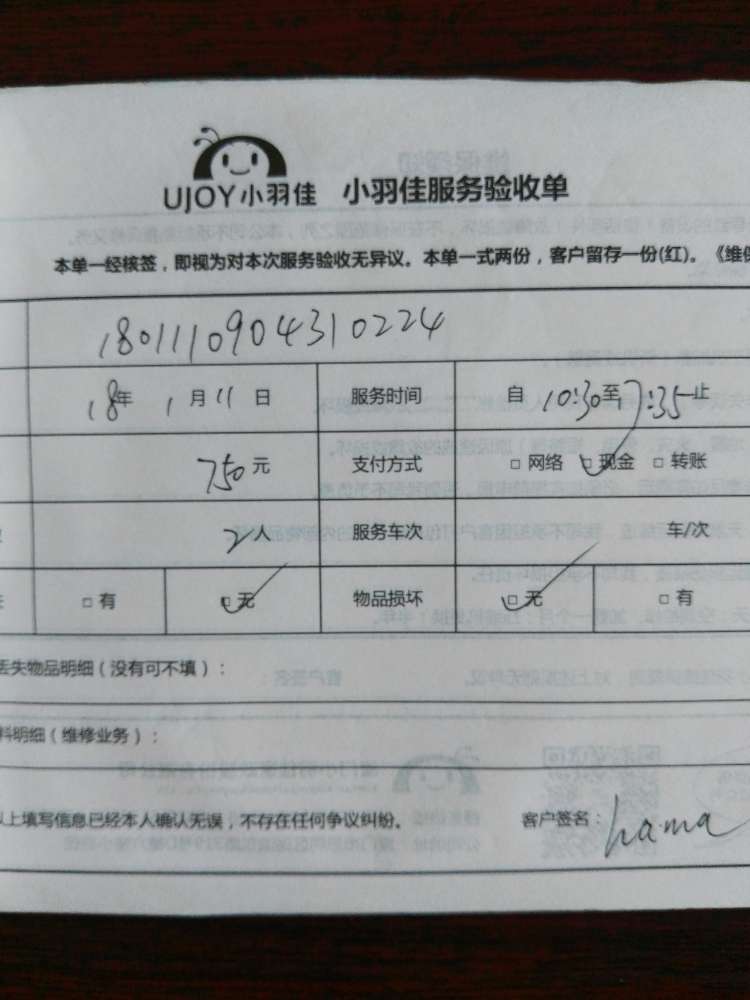 UJOY小羽佳 小羽佳服务验收单
本单一经核签，即视为对本次服务验收无异议。本单一式两份，客户留存一份(红)。《维保
1801110904310224
18年 1月11日 服务时间 自 10:30至7:35止
750元 支付方式 □ 网络 □ 现金 □ 转账
2人 服务车次 车/次
□ 有 □ 无 物品损坏 □ 无 □ 有
丢失物品明细（没有可不填）：
料明细（维修业务）：
以上填写信息已经本人确认无误，不存在任何争议纠纷。 客户签名：hama